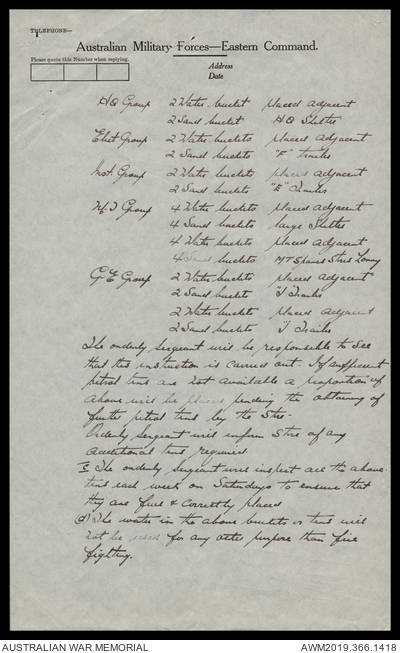 TELEPHONE—
Australian Military Forces—Eastern Command.
Please quote this Number when replying.
Address
Date
HQ Group 2 Water bucket placed adjacent
2 Sand bucket HQ Shelter
Elect Group 2 Water buckets placed adjacent
2 Sand buckets "F" Trucks
Inst. Group 2 Water buckets placed adjacent
2 Sand buckets "E"
Group 4 Water buckets placed adjacent
4 Sand buckets large Shelter
4 Water buckets placed adjacent
4 Sand buckets MT Spares Store Lorry
G.E Group 2 Water buckets placed adjacent
2 Sand buckets "J"
2 Water buckets placed adjacent
2 Sand buckets J Trailer
The orderly Sergeant will be responsible to see
that this instruction is carried out. If insufficient
petrol tins are not available a proportion of
above will be placed pending the obtaining of
further petrol tins by the Stre.
Orderly Sergeant will inform Stre of any
additional tins required
The orderly Sergeant will inspect all the above
tins each week on Saturdays to ensure that
they are full & correctly placed
d) The water in the above buckets or tins will
not be used for any other purpose than fire
fighting.
AUSTRALIAN WAR MEMORIAL
AWM2019.366.1418